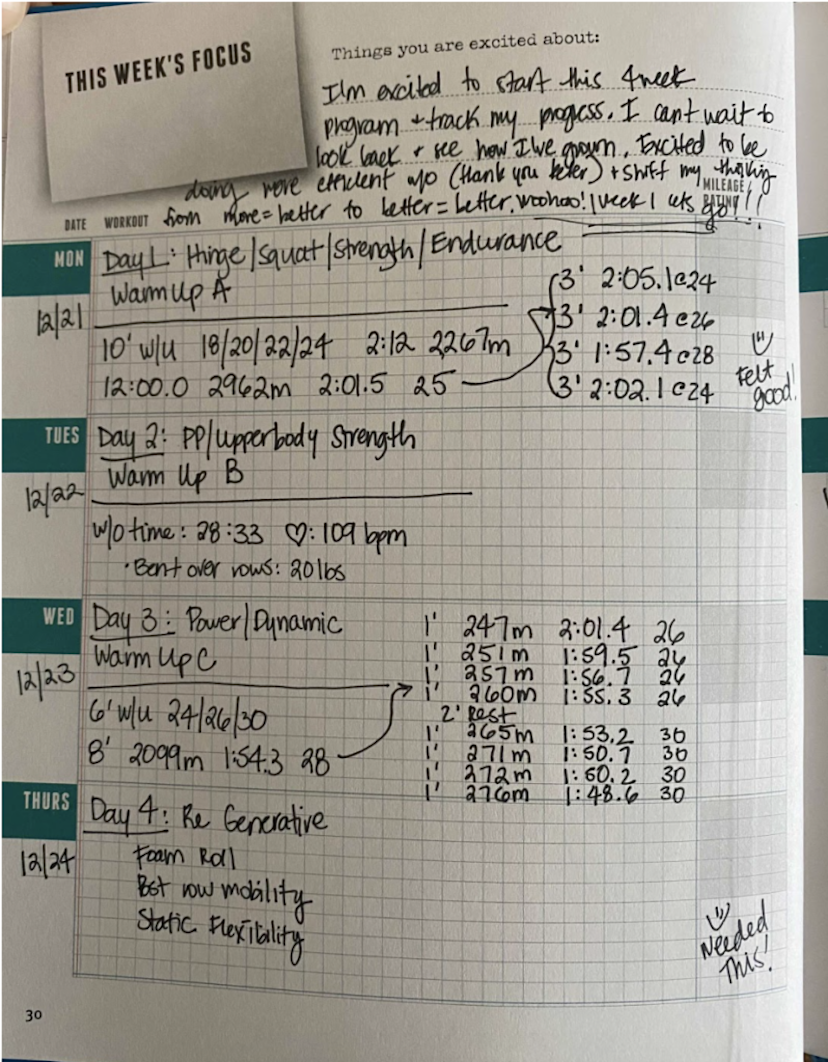 THIS WEEK'S FOCUS
Things you are excited about:
I'm excited to start this 4 week
program + track my progress. I cant wait to
look back + see how I've grown. Excited to be
doing more efficient w/o (thank you Peter) + shift my thinking
MILEAGE/
RATING
from more = better to better = better. woohoo! 1 week 1 lets go!!!
DATE WORKOUT
MON
12/21
Day 1: Hinge/Squat/Strength/Endurance
Warm Up A
10' w/u 18/20/22/24 2:12 2267m
12:00.0 2962m 2:01.5 25
3' 2:05.1@24
3' 2:01.4@26
3' 1:57.4@28
3' 2:02.1@24
Felt
good!
TUES
12/22
Day 2: PP/Upperbody Strength
Warm Up B
w/o time: 28:33 ♡: 109 bpm
· Bent over rows: 20 lbs
WED
12/23
Day 3: Power/Dynamic
Warm Up C
6' w/u 24/26/30
8' 2099m 1:54.3 28
1' 247m 2:01.4 26
1' 251m 1:59.5 26
1' 257m 1:56.7 26
1' 260m 1:55.3 26
2' Rest
1' 265m 1:53.2 30
1' 271m 1:50.7 30
1' 272m 1:50.2 30
1' 276m 1:48.6 30
THURS
12/24
Day 4: Re Generative
Foam Roll
row mobility
Static Flexibility
Needed
This!
30